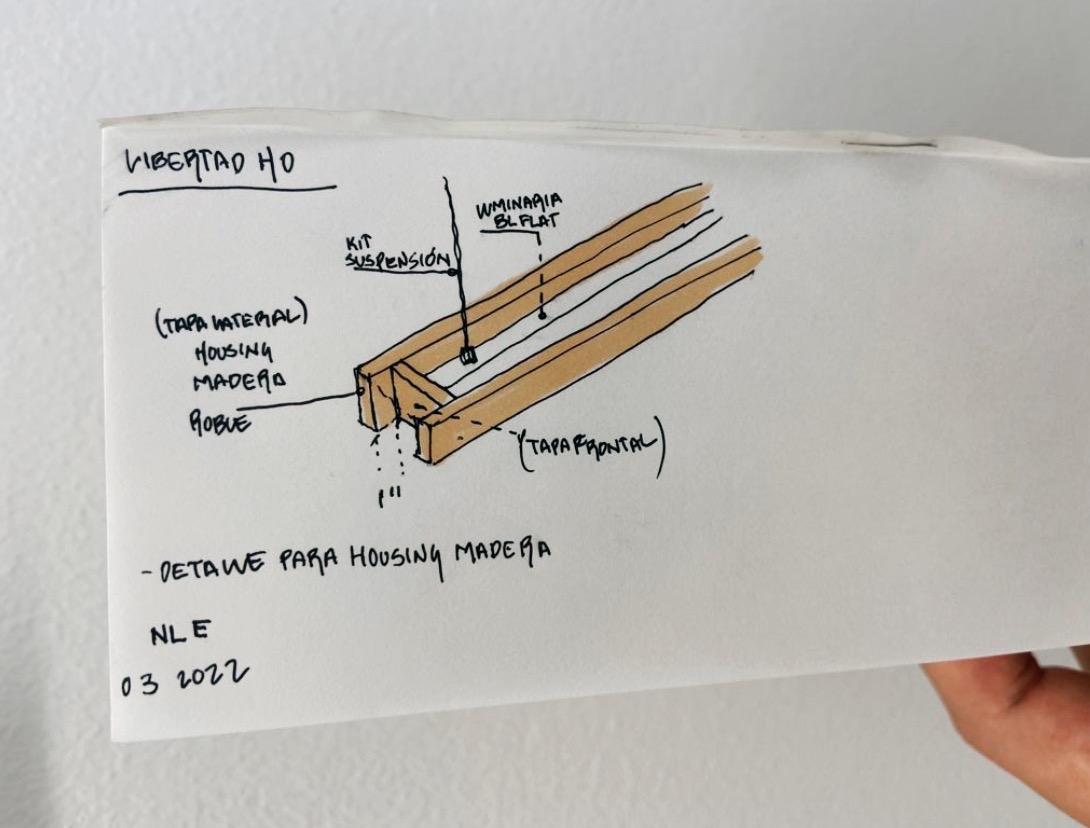 LIBERTAD HD
LUMINARIA
BL FLAT
KIT
SUSPENSIÓN
(TAPA LATERAL)
HOUSING
MADERA
ROBLE
(TAPA FRONTAL)
1"
- DETALLE PARA HOUSING MADERA
NLE
03 2022